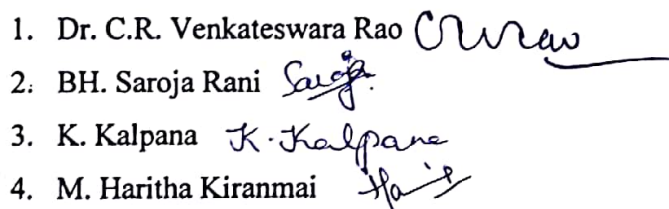 1. Dr. C.R. Venkateswara Rao CRVRao
2. BH. Saroja Rani Saroja.
3. K. Kalpana K. Kalpana
4. M. Haritha Kiranmai